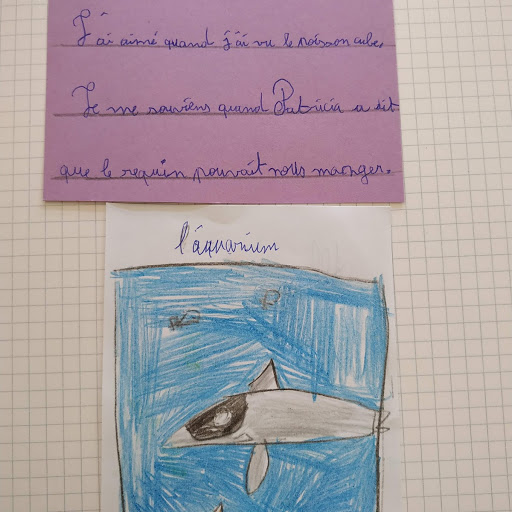 J'ai aimé quand j'ai vu le poisson cube,
Je me souviens quand Patricia a dit
que le requin pouvait nous manger.
l'aquarium